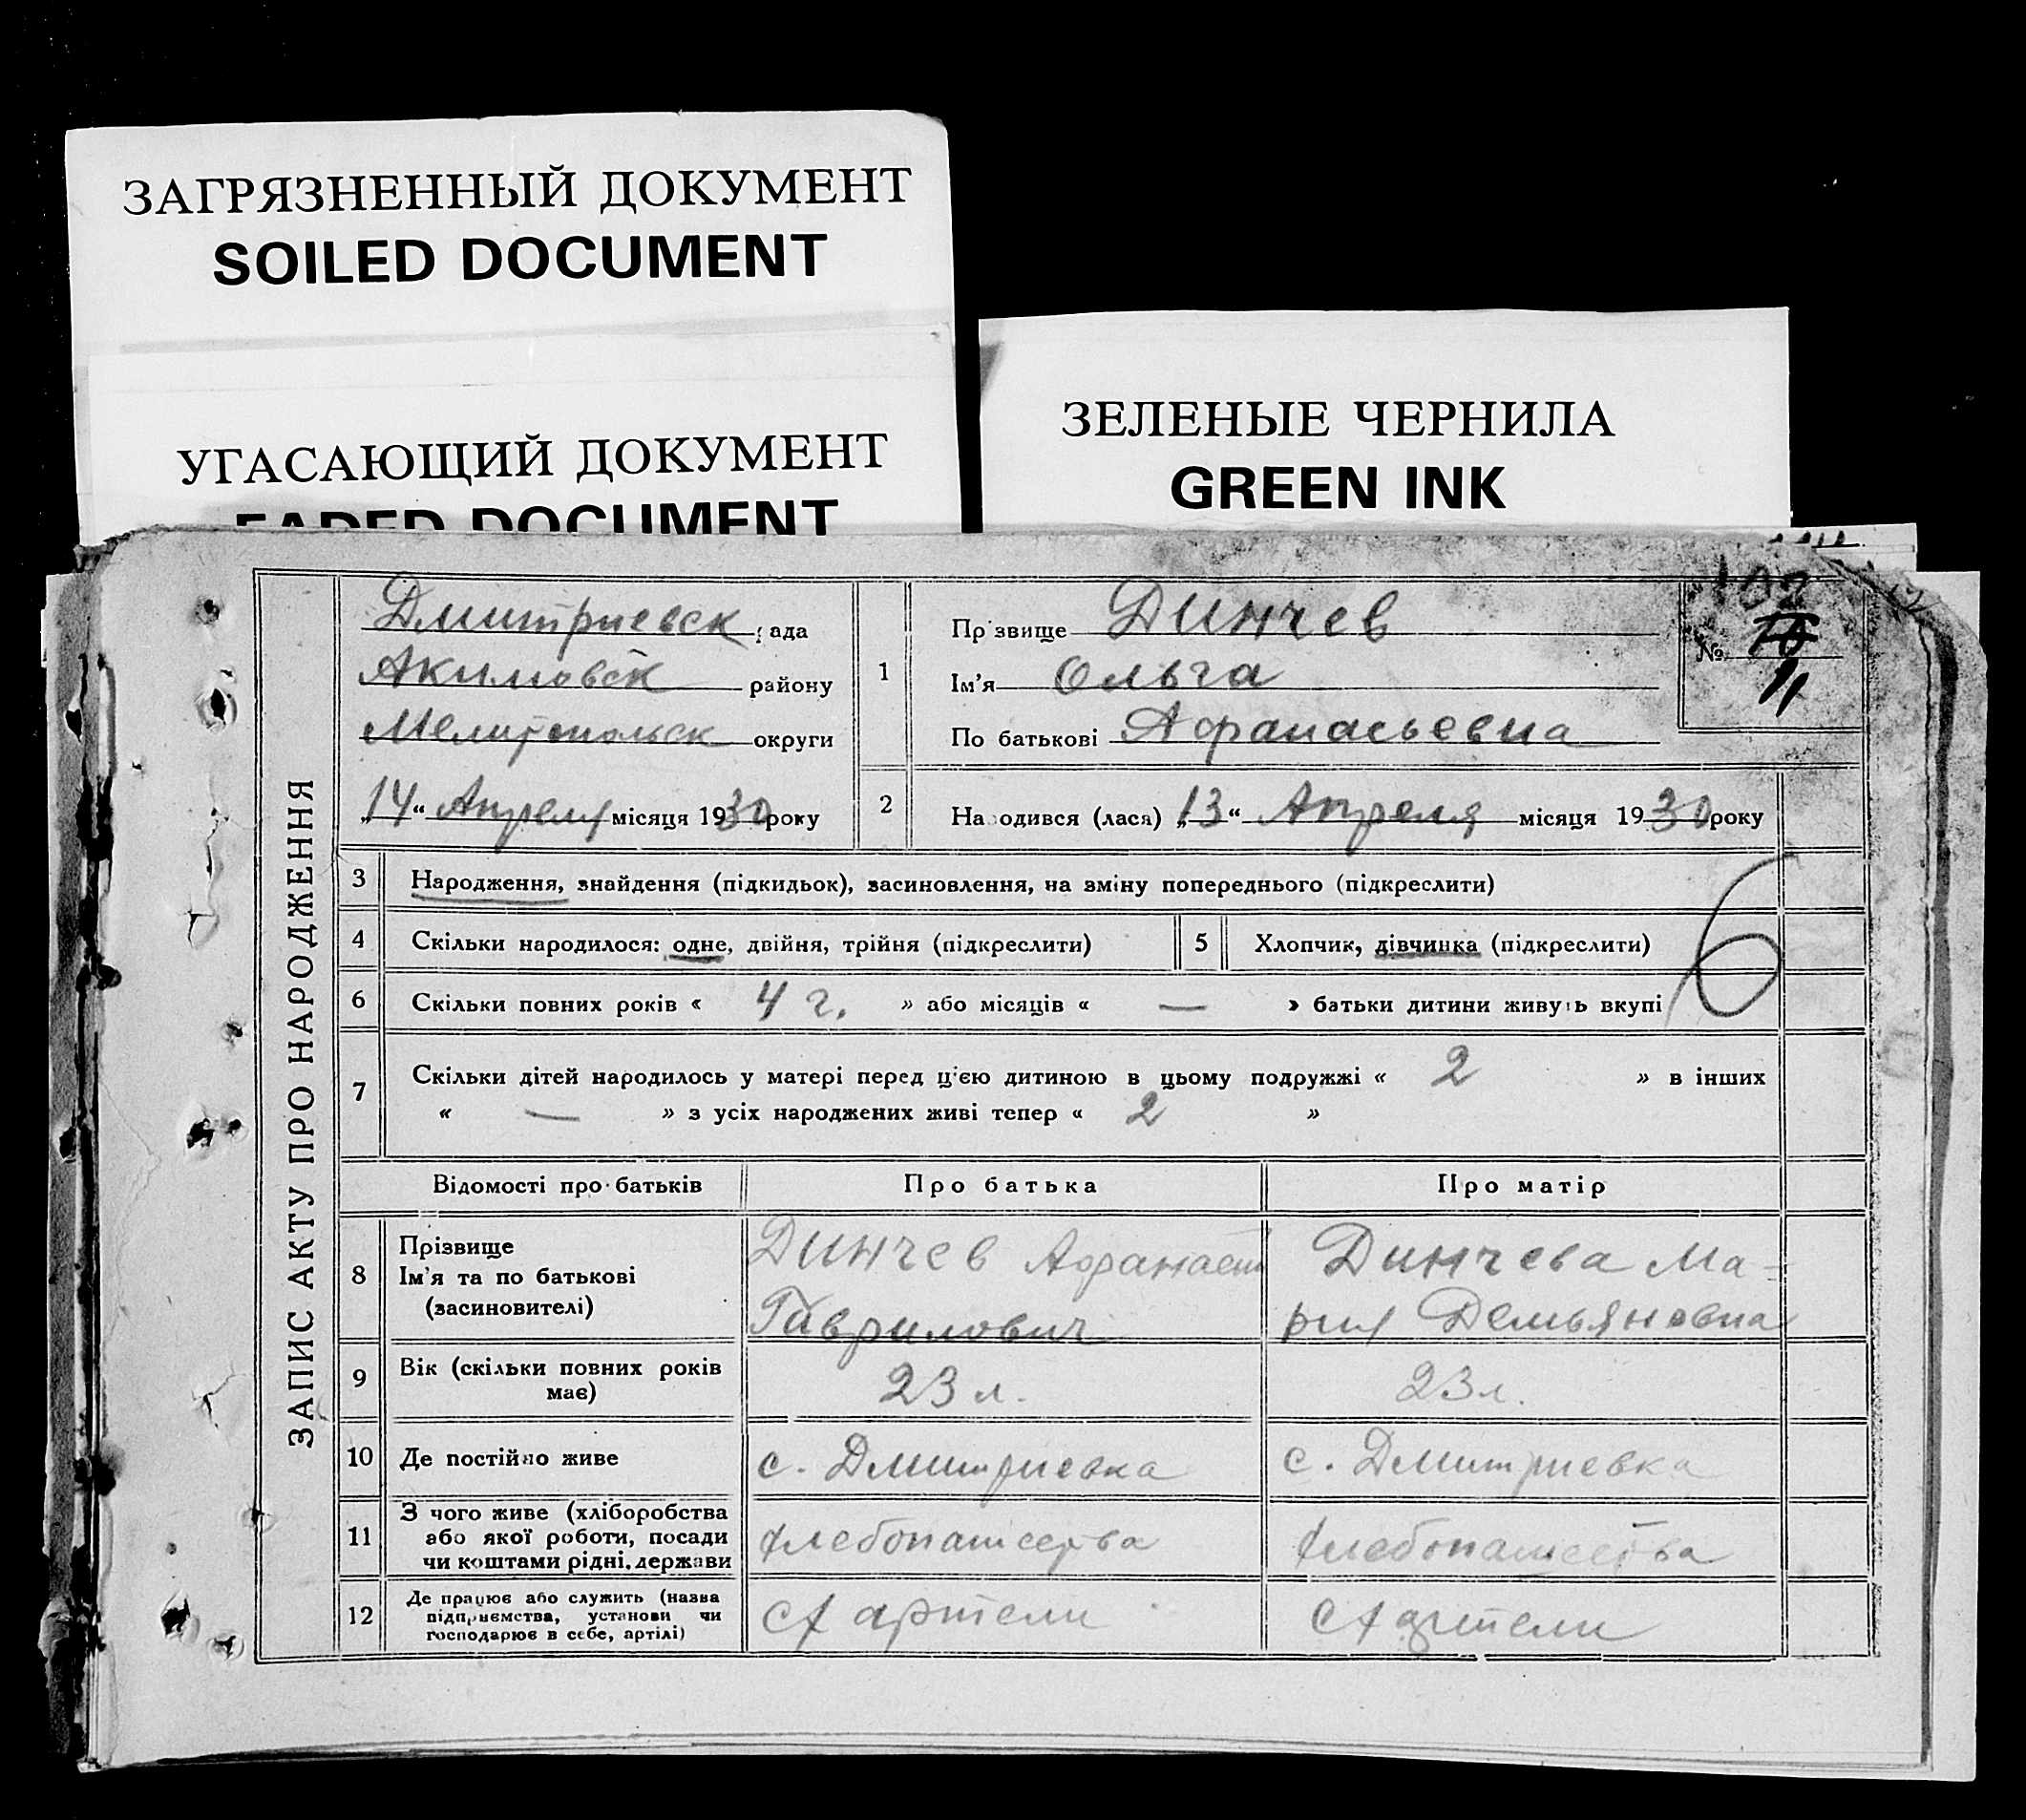 ЗАГРЯЗНЕННЫЙ ДОКУМЕНТ
SOILED DOCUMENT
УГАСАЮЩИЙ ДОКУМЕНТ
FADED DOCUMENT
ЗЕЛЕНЫЕ ЧЕРНИЛА
GREEN INK
ЗАПИС АКТУ ПРО НАРОДЖЕННЯ
Дмитриевск рада
Акимовск району
Мелитопольск округи
„14“ Апреля місяця 1930 року
1
Прізвище Динчев
Ім'я Ольга
По батькові Афанасьевна
№
11
2
Народився (лася) „13“ Апреля місяця 1930 року
3 Народження, знайдення (підкидьок), засиновлення, на зміну попереднього (підкреслити)
4 Скільки народилося: одне, двійня, трійня (підкреслити)
5 Хлопчик, дівчинка (підкреслити)
6
6 Скільки повних років « 4 г. » або місяців « — » батьки дитини живуть вкупі
7 Скільки дітей народилось у матері перед цією дитиною в цьому подружжі « 2 » в інших
« — » з усіх народжених живі тепер « 2 »
Відомості про батьків Про батька Про матір
8
Прізвище
Ім'я та по батькові
(засиновителі)
Динчев Афанасий
Гаврилович
Динчева Ма-
рия Демьяновна
9 Вік (скільки повних років
має)
23 л.
23 л.
10 Де постійно живе
с. Дмитриевка
с. Дмитриевка
11
З чого живе (хліборобства
або якої роботи, посади
чи коштами рідні, держави
хлебопашества
хлебопашества
12
Де працює або служить (назва
підприємства, установи чи
господарює в себе, артілі)
сх артели
сх артели